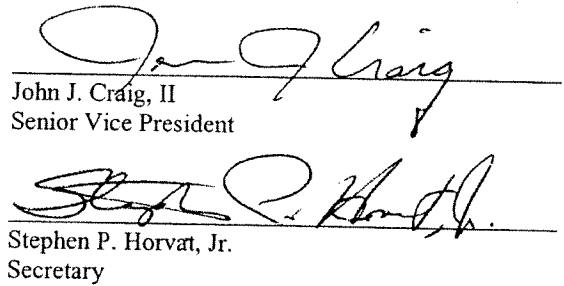 John J Craig
John J. Craig, II
Senior Vice President
Stephen P. Horvat, Jr.
Stephen P. Horvat, Jr.
Secretary